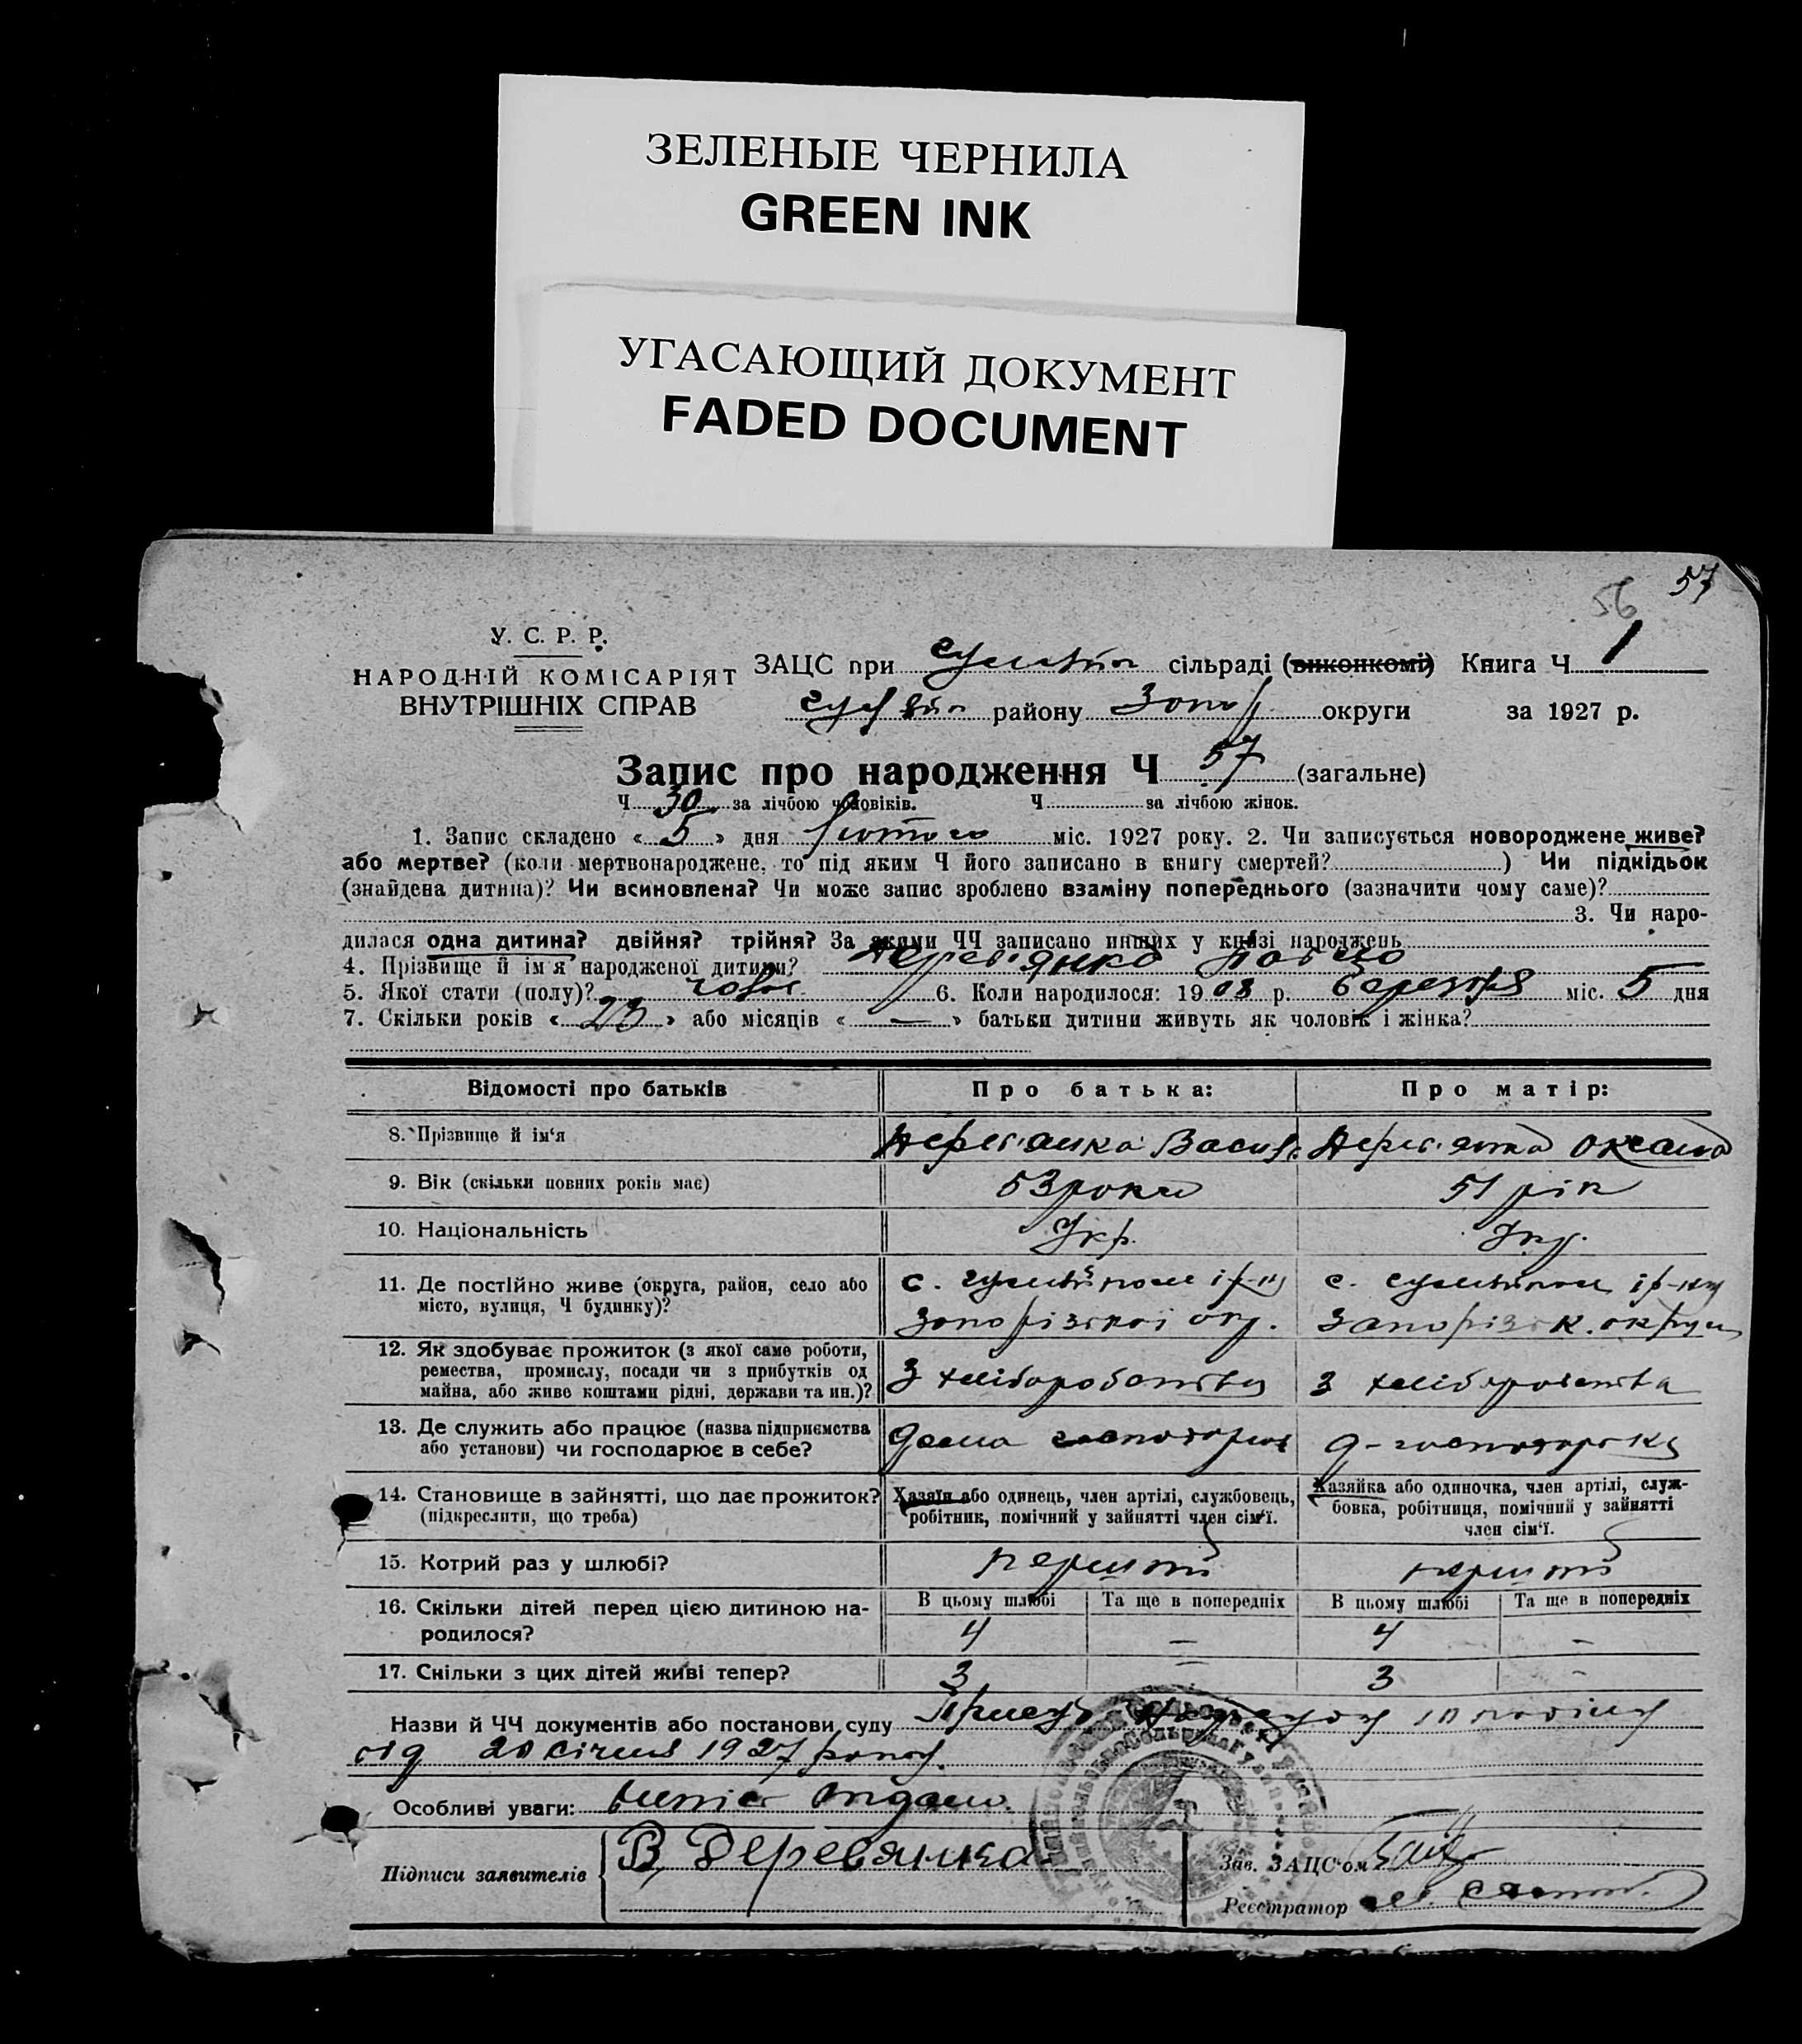 ЗЕЛЕНЫЕ ЧЕРНИЛА
GREEN INK
УГАСАЮЩИЙ ДОКУМЕНТ
FADED DOCUMENT
56 57
У. С. Р. Р.
НАРОДНІЙ КОМІСАРІЯТ
ВНУТРІШНІХ СПРАВ
ЗАЦС при сільраді (виконкомі) Книга Ч 1
району округи за 1927 р.
Запис про народження Ч 57 (загальне)
Ч 30 за лічбою чоловіків. Ч за лічбою жінок.
1. Запис складено « 5 » дня лютого міс. 1927 року. 2. Чи записується новороджене живе?
або мертве? (коли мертвонароджене, то під яким Ч його записано в книгу смертей? ) Чи підкідьок
(знайдена дитина)? Чи всиновлена? Чи може запис зроблено взаміну попереднього (зазначити чому саме)?
3. Чи наро-
дилася одна дитина? двійня? трійня? За якими ЧЧ записано инших у книзі народжень
4. Прізвище й ім'я народженої дитини? Дерев'янко Павло
5. Якої стати (полу)? чолов. 6. Коли народилося: 19 08 р. березня міс. 5 дня
7. Скільки років « 23 » або місяців « — » батьки дитини живуть як чоловік і жінка?
Відомості про батьків
Про батька:
Про матір:
8. Прізвище й ім'я
Дерев'янко Василь
Дерев'янко Оксана
9. Вік (скільки повних років має)
53 роки
51 рік
10. Національність
Укр.
Укр.
11. Де постійно живе (округа, район, село або
місто, вулиця, Ч будинку)?
с. і р-ну
Запорізької окр.
с. і р-ну
Запорізьк. округи
12. Як здобуває прожиток (з якої саме роботи,
ремества, промислу, посади чи з прибутків од
майна, або живе коштами рідні, держави та ин.)?
З хліборобства
З хліборобства
13. Де служить або працює (назва підприємства
або установи) чи господарює в себе?
дома господарює
д-господарка
14. Становище в зайнятті, що дає прожиток?
(підкреслити, що треба)
Хазяїн або одинець, член артілі, службовець,
робітник, помічний у зайнятті член сім'ї.
Хазяйка або одиночка, член артілі, служ-
бовка, робітниця, помічний у зайнятті
член сім'ї.
15. Котрий раз у шлюбі?
перший
перший
16. Скільки дітей перед цією дитиною на-
родилося?
В цьому шлюбі Та ще в попередніх
В цьому шлюбі Та ще в попередніх
4 — 4 —
17. Скільки з цих дітей живі тепер?
3 — 3 -
Назви й ЧЧ документів або постанови суду
від 20 січня 1927 року.
Особливі уваги: витяг видано.
Підписи заявителів
В. Деревянко
Зав. ЗАЦС'ом
Реєстратор